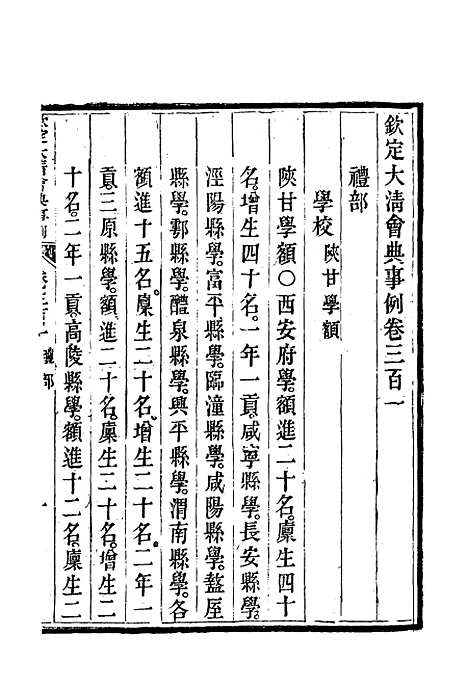 欽定大清會典事例卷三百一
禮部
學校 陝甘學額
陝甘學額〇西安府學。額進二十名。廩生四十
名。增生四十名。一年一貢。咸寧縣學。長安縣學。
涇陽縣學。富平縣學。臨潼縣學。咸陽縣學。盩厔
縣學。鄠縣學。醴泉縣學。興平縣學。渭南縣學。各
額進十五名。廩生二十名。增生二十名。二年一
貢。三原縣學。額進二十名。廩生二十名。增生二
十名。二年一貢。高陵縣學。額進十二名。廩生二
欽定大清會典事例 卷三百一 禮部 一